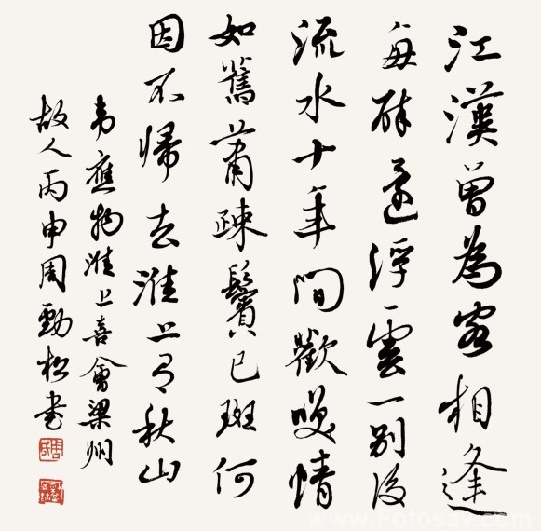 江漢曾為客相逢
每醉還浮雲一別後
流水十年間歡咲情
如舊蕭疎鬢已斑何
因不歸去淮上有秋山
韋應物淮上喜會梁州
故人丙申周勁松書